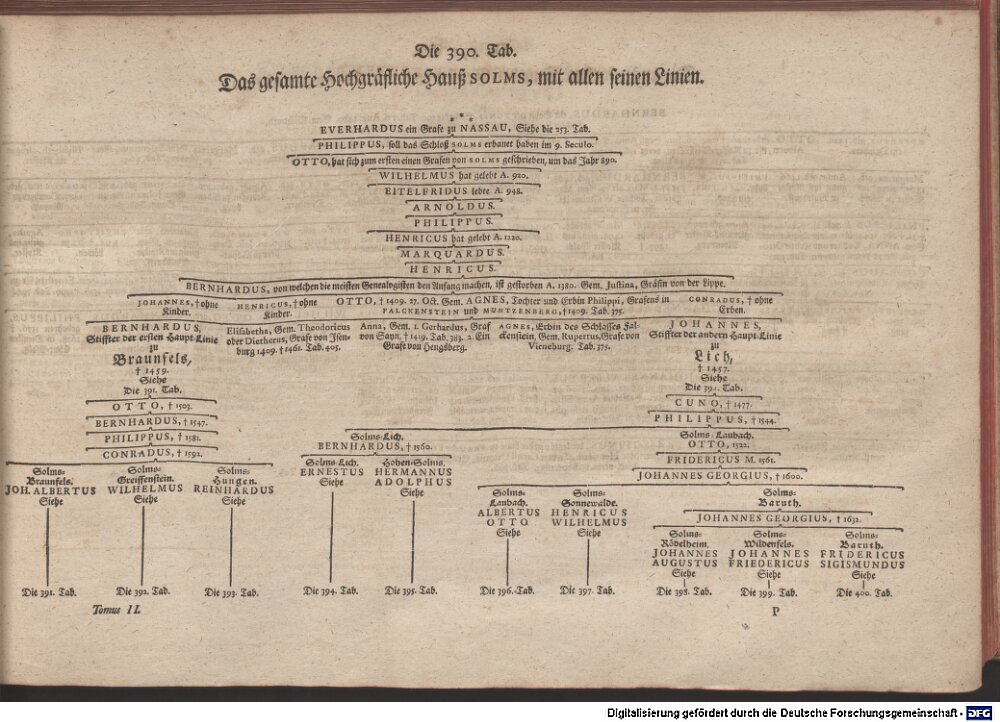 Die 390. Tab.
Das gesamte Hochgräfliche Hauß SOLMS, mit allen seinen Linien.
EVERHARDUS ein Grafe zu NASSAU, Siehe die 253. Tab.
PHILIPPUS, soll das Schloß SOLMS erbauet haben im 9. Seculo.
OTTO, hat sich zum ersten einen Grafen von SOLMS geschrieben, um das Jahr 890.
WILHELMUS hat gelebt A. 920.
EITELFRIDUS lebte A. 948.
ARNOLDUS.
PHILIPPUS.
HENRICUS hat gelebt A. 1220.
MARQUARDUS.
HENRICUS.
BERNHARDUS, von welchen die meisten Genealogisten den Anfang machen, ist gestorben A. 1380. Gem. Justina, Gräfin von der Lippe.
JOHANNES, † ohne
Kinder.
HENRICUS, † ohne
Kinder.
OTTO, † 1409. 27. Oct. Gem. AGNES, Tochter und Erbin Philippi, Grafens in
FALCKENSTEIN und MUNTZENBERG, † 1409. Tab. 375.
CONRADUS, † ohne
Erben.
BERNHARDUS,
Stiffter der ersten Haupt-Linie
zu
Braunfels,
† 1459.
Siehe
Die 391. Tab.
Elisabetha, Gem. Theodoricus
oder Dietherus, Grafe von Isen-
burg 1409. † 1461. Tab. 405.
Anna, Gem. 1. Gerhardus, Graf
von Sayn, † 1419. Tab. 383. 2. Ein
Grafe von Hengsberg.
AGNES, Erbin des Schlosses Fal-
ckenstein, Gem. Rupertus, Grafe von
Vieneburg. Tab. 375.
JOHANNES,
Stiffter der andern Haupt-Linie
zu
Lich,
† 1457.
Siehe
Die 394. Tab.
OTTO, † 1503.
BERNHARDUS, † 1547.
PHILIPPUS, † 1581.
CONRADUS, † 1592.
CUNO, † 1477.
PHILIPPUS, † 1544.
Solms-Lich.
BERNHARDUS, † 1560.
Solms-Laubach.
OTTO, 1522.
FRIDERICUS M. 1561.
JOHANNES GEORGIUS, † 1600.
Solms-
Braunfels.
JOH. ALBERTUS
Siehe
Solms-
Greiffenstein.
WILHELMUS
Siehe
Solms-
Hungen.
REINHARDUS
Siehe
Solms-Lich.
ERNESTUS
Siehe
Hohen-Solms.
HERMANNUS
ADOLPHUS
Siehe
Solms-
Laubach.
ALBERTUS
OTTO
Siehe
Solms-
Sonnewalde.
HENRICUS
WILHELMUS
Siehe
Solms-
Baruth.
JOHANNES GEORGIUS, † 1632.
Solms-
Rödelheim.
JOHANNES
AUGUSTUS
Siehe
Solms-
Wildenfels.
JOHANNES
FRIEDERICUS
Siehe
Solms-
Baruth.
FRIDERICUS
SIGISMUNDUS
Siehe
Die 391. Tab.
Die 392. Tab.
Die 393. Tab.
Die 394. Tab.
Die 395. Tab.
Die 396. Tab.
Die 397. Tab.
Die 398. Tab.
Die 399. Tab.
Die 400. Tab.
Tomus II.
P
Digitalisierung gefördert durch die Deutsche Forschungsgemeinschaft - DFG